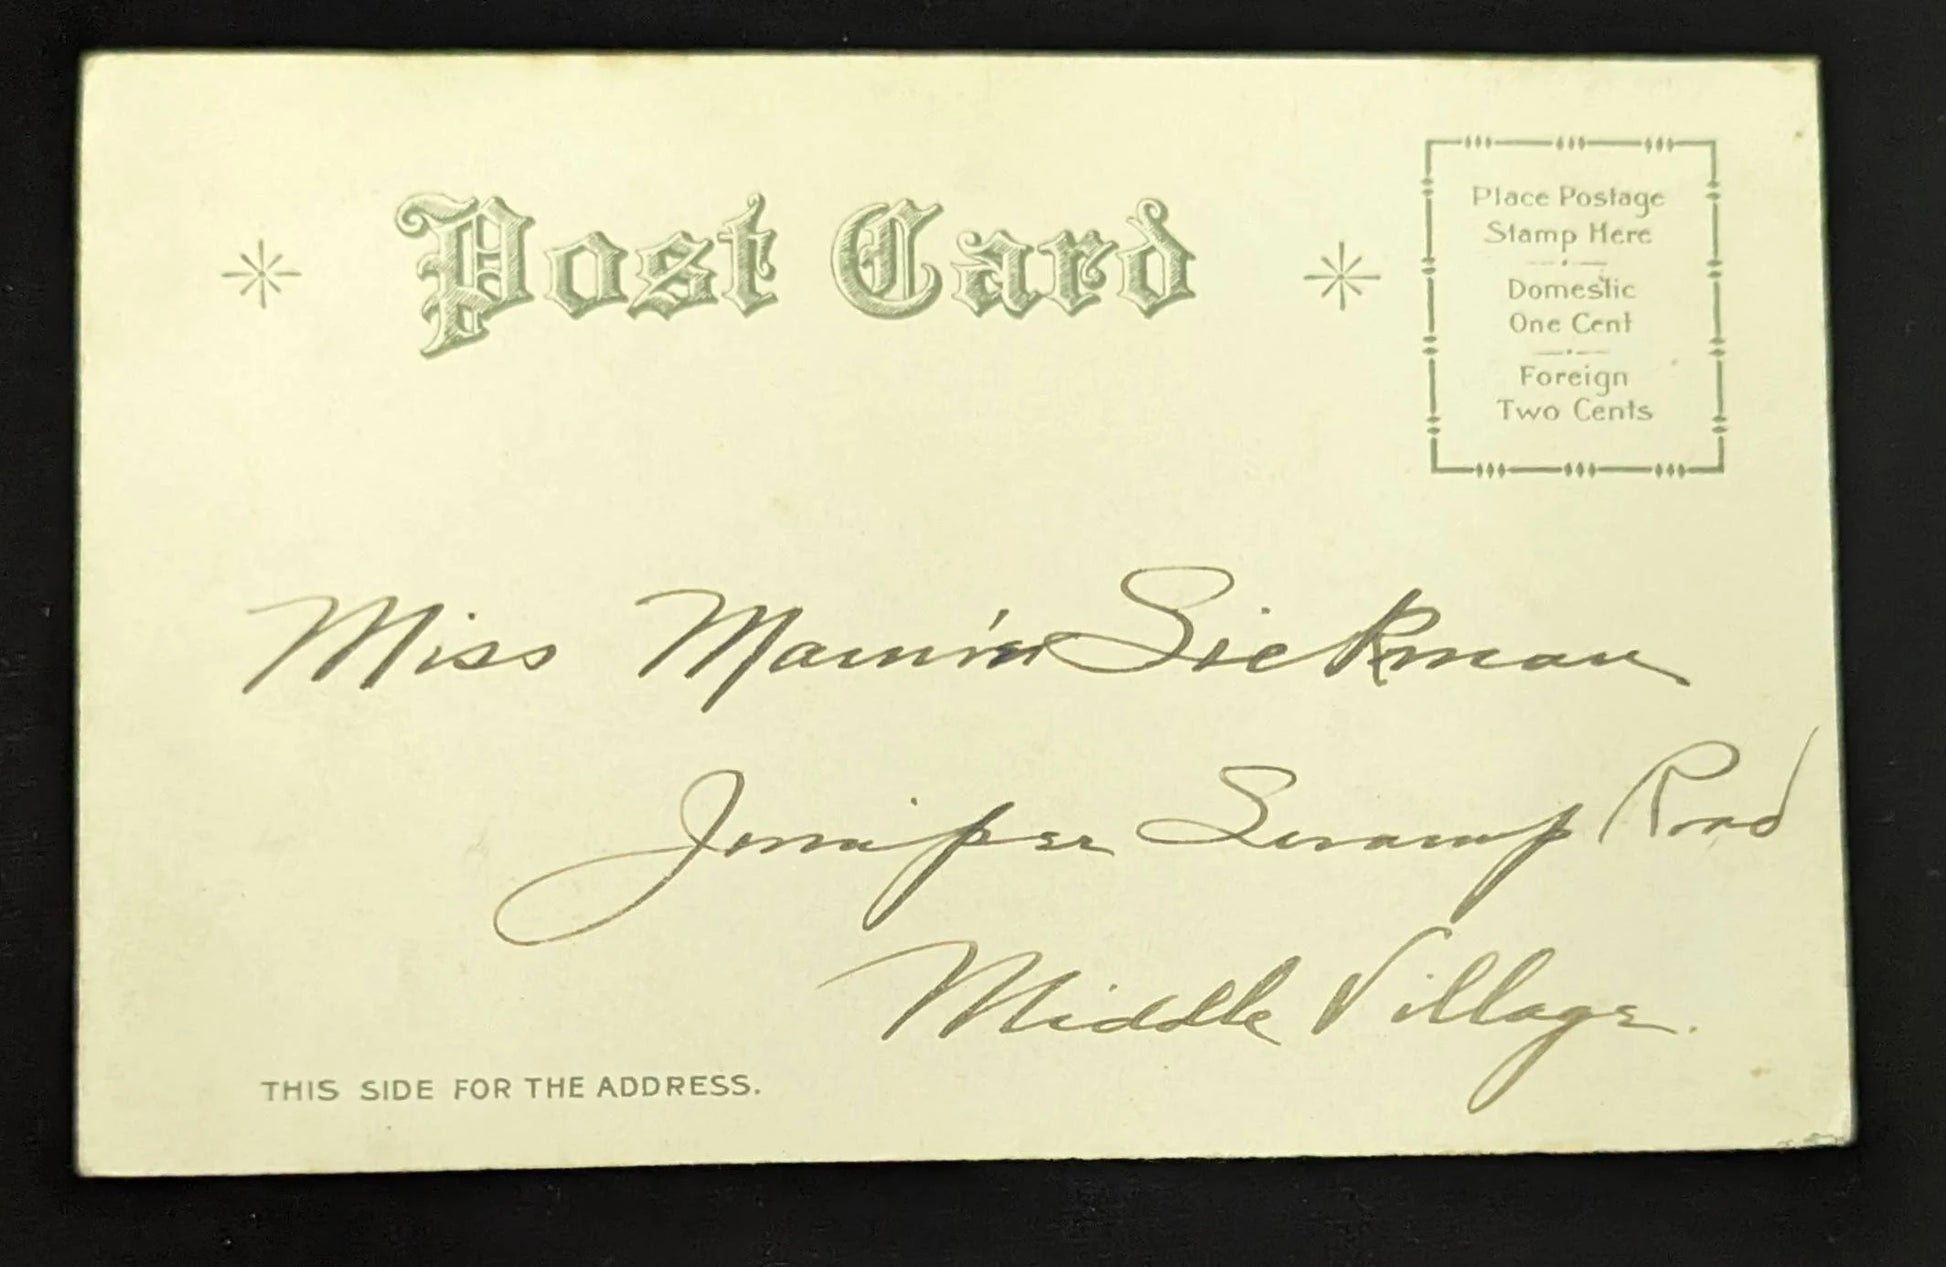 Post Card
Place Postage
Stamp Here
Domestic
One Cent
Foreign
Two Cents
Miss Mamie Sickman
Juniper Swamp Road
Middle Village.
THIS SIDE FOR THE ADDRESS.